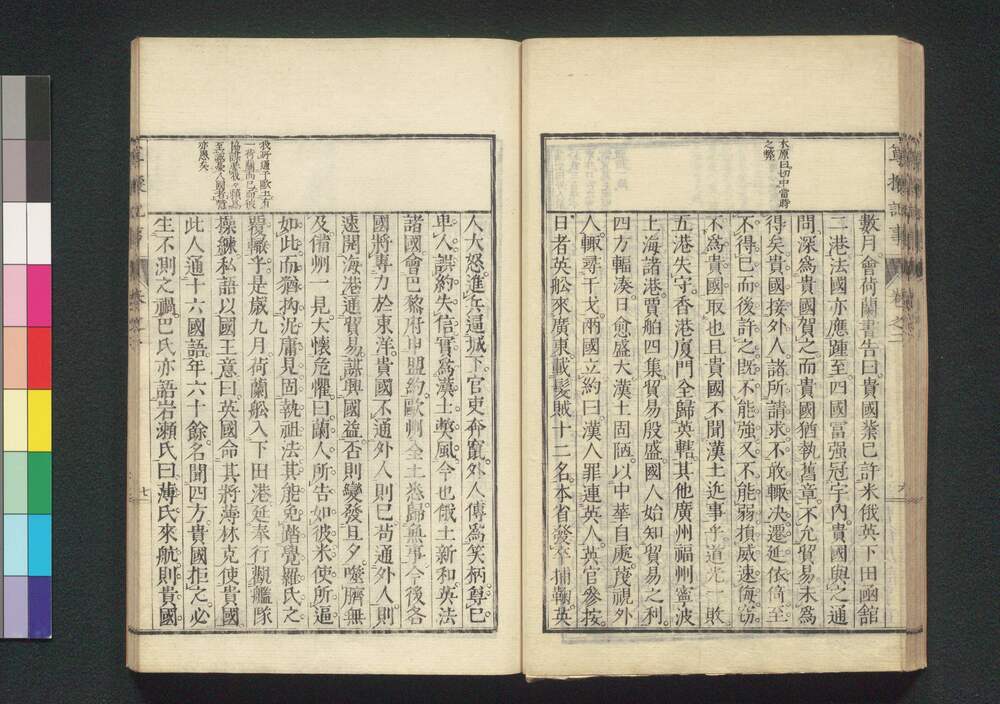 數月會荷蘭書告曰貴國業已許米俄英下田函館
二港法國亦應踵至四國富强冠宇內貴國與之通
問深爲貴國賀之而貴國猶執舊章不允貿易未爲
得矣貴國接外人諸所請求不敢輙決遷延依倚至
不得已而後許之旣不能強又不能弱損威速侮竊
不爲貴國取也且貴國不聞漢土近事乎道光一敗
五港失守香港廈門全歸英轄其他廣州福州寧波
上海諸港賈舶四集貿易殷盛國人始知貿易之利
四方輻湊日愈盛大漢土固陋以中華自處蔑視外
人輙尋干戈兩國立約曰漢人罪連英人英官參按
日者英舩來廣東載髮賊十二名本省發卒捕鞫英
木原曰切中當時
之弊
人大怒進兵逼城下官吏奔竄外人傳爲笑柄尊己
卑人誤約失信實爲漢土弊風今也俄土新和英法
諸國會巴黎府申盟約歐州全土悉歸無事今後各
國將專力於東洋貴國不通外人則已苟通外人則
速開海港通貿易謀興國益否則變發旦夕噬臍無
及備州一見大懷危懼曰蘭人所告如彼米使所逼
如此而猶拘泥庸見固執祖法其能免踏覺羅氏之
覆轍乎是歲九月荷蘭舩入下田港延奉行觀艦隊
操練私語以國王意曰英國命其將薄林克使貴國
此人通十六國語年六十餘名聞四方貴國拒之必
生不測之禍巴氏亦語岩瀨氏曰薄氏來航則貴國
七